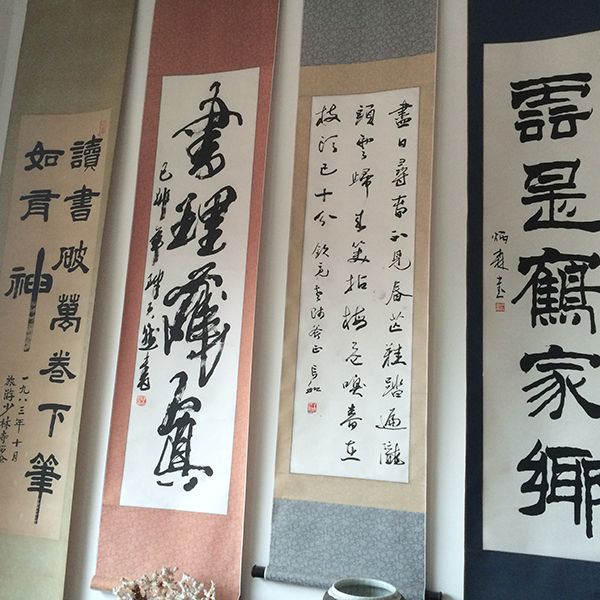 雲是鶴家鄉
炳森書
盡日尋春不見春芒鞋踏遍隴
頭雲歸來笑拈梅花嗅春在
枝頭已十分
書理真
己卯年
讀書破萬卷下筆
如有神
一九八三年十月
少林寺